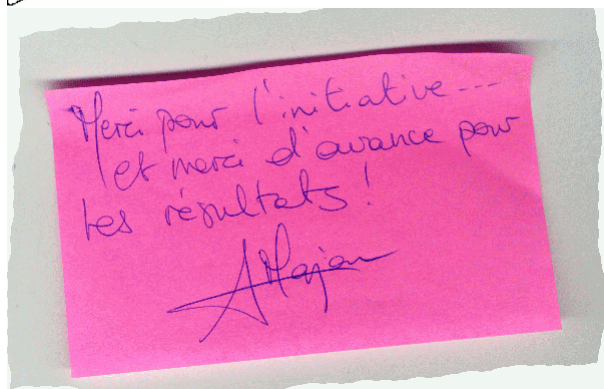 Merci pour l'initiative ---
et merci d'avance pour
tes résultats !